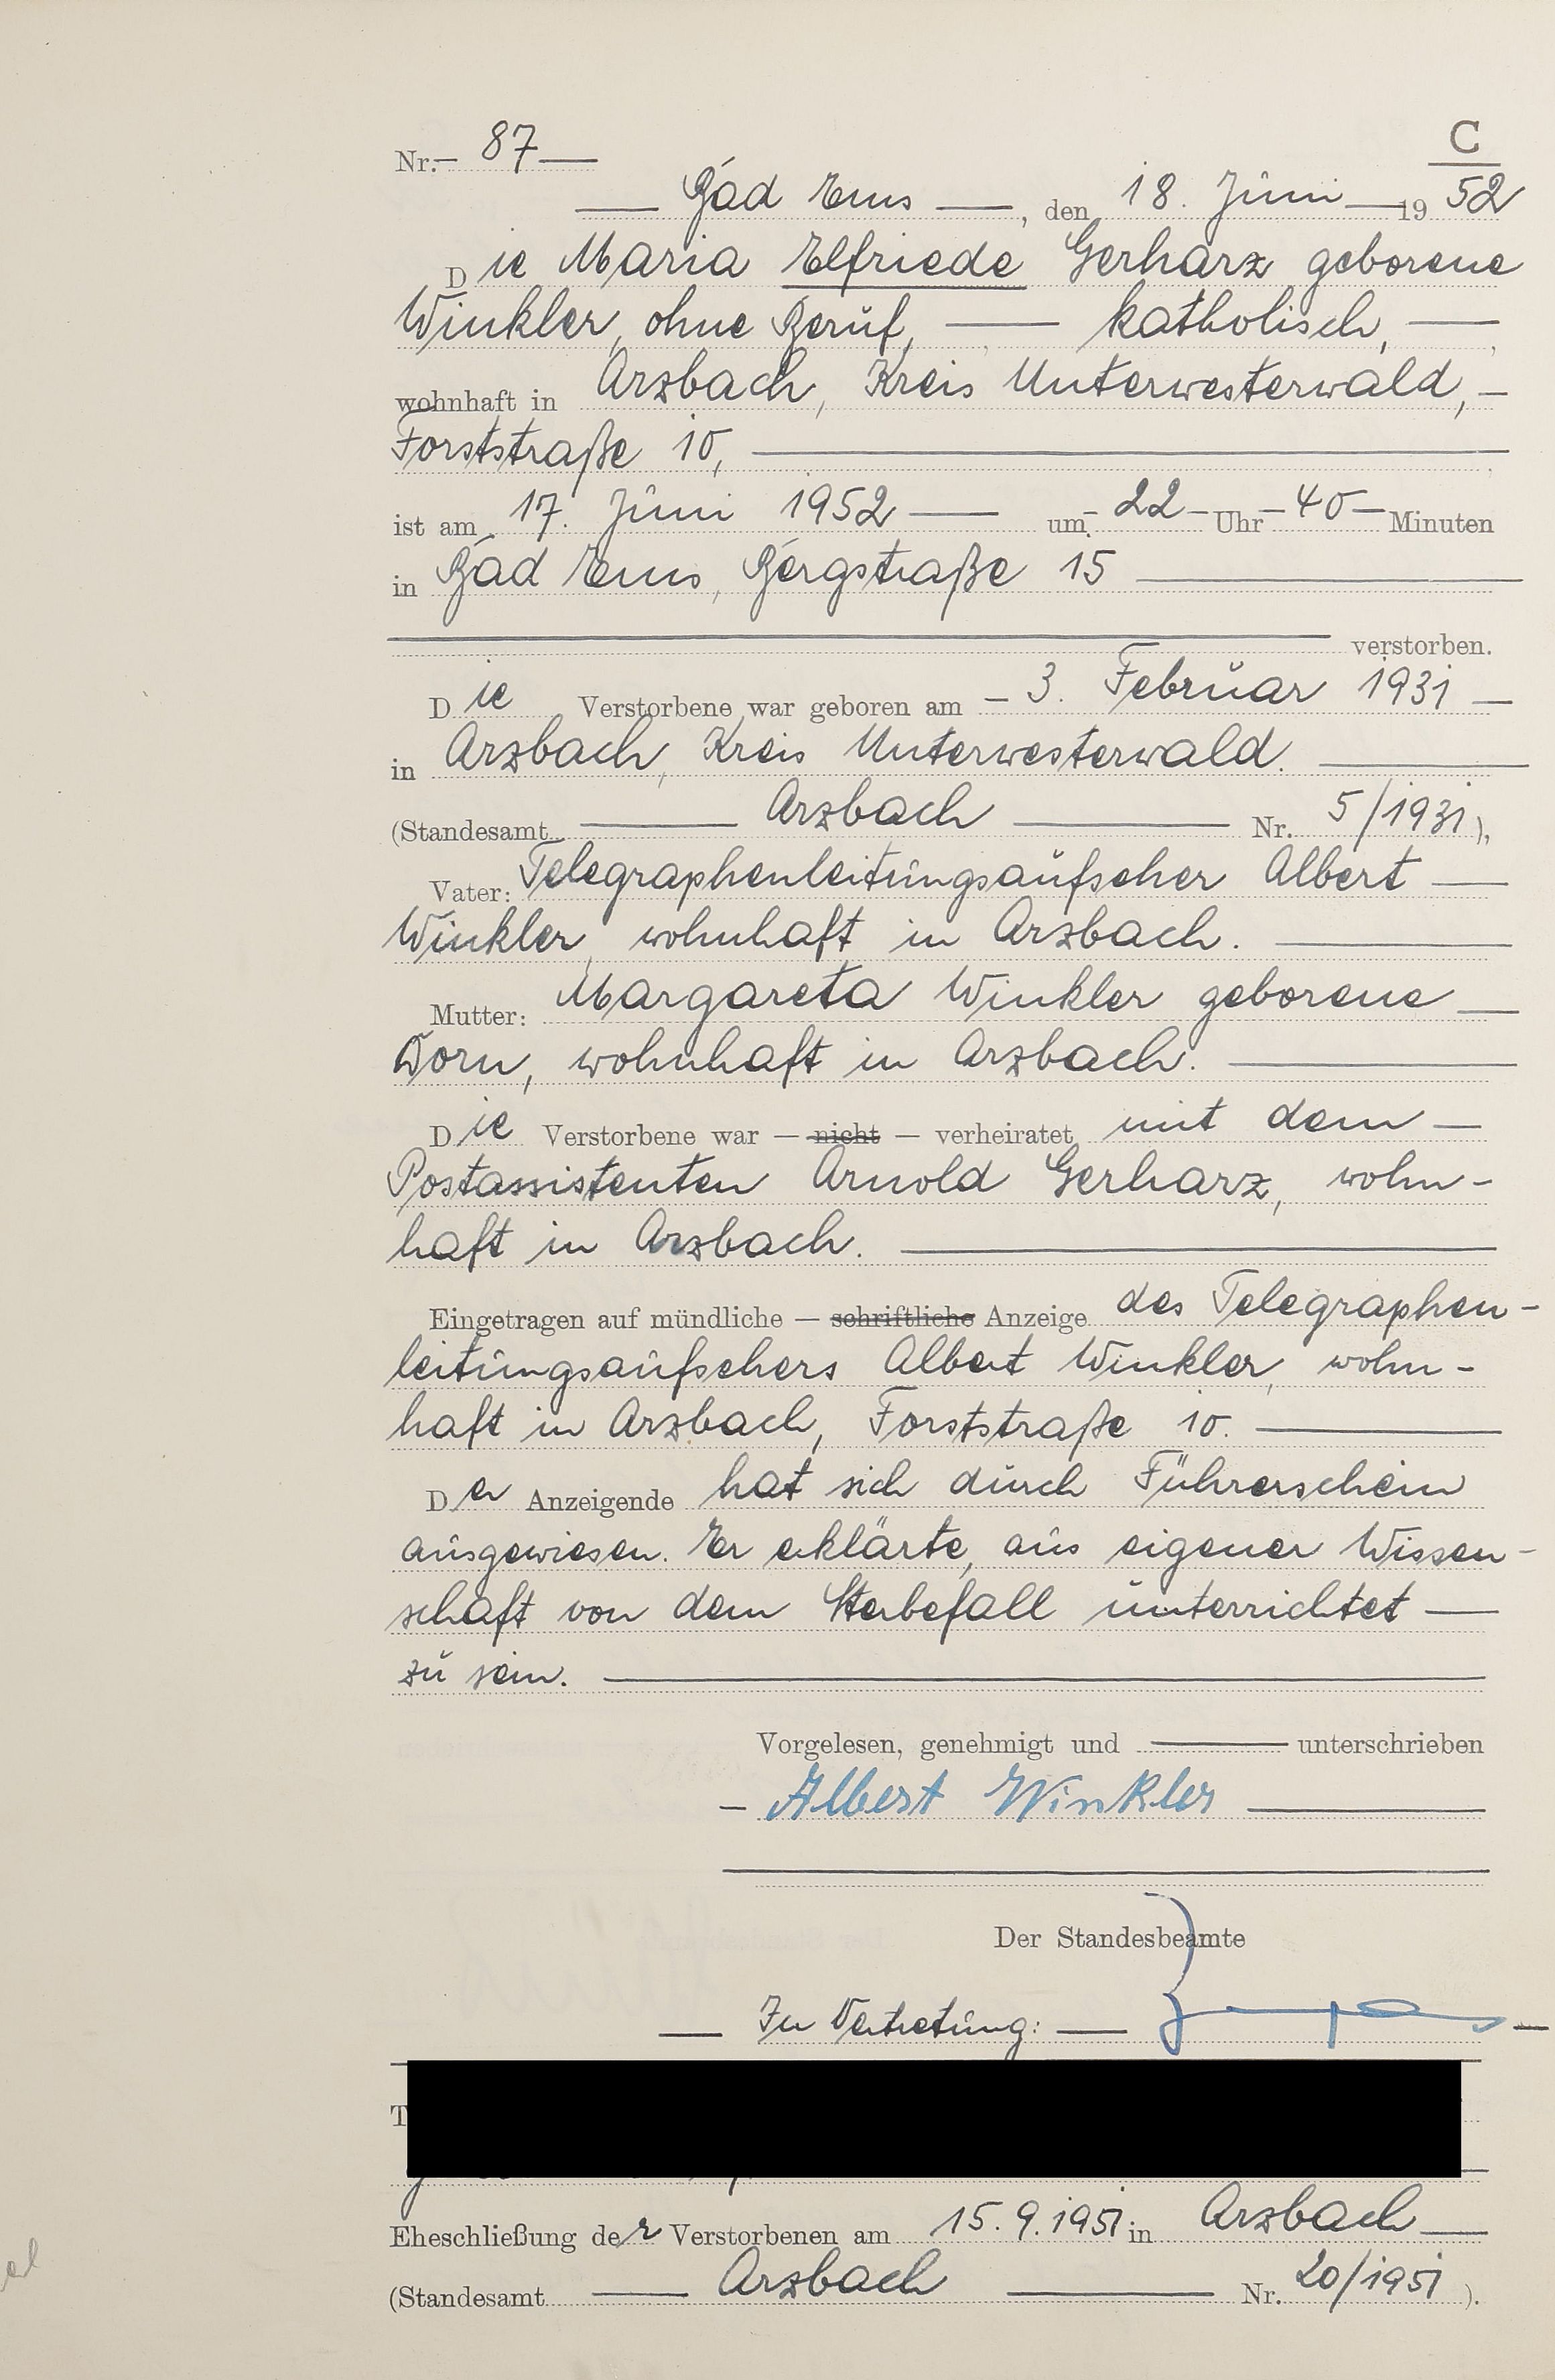 C
Nr. 87
Bad Ems, den 18. Juni 1952
Die Maria Elfriede Gerharz geborene
Winkler, ohne Beruf, katholisch,
wohnhaft in Arzbach, Kreis Unterwesterwald,
Forststraße 10,
ist am 17. Juni 1952 um 22 Uhr 40 Minuten
in Bad Ems, Bergstraße 15
verstorben.
Die Verstorbene war geboren am 3. Februar 1931
in Arzbach, Kreis Unterwesterwald.
(Standesamt Arzbach Nr. 5/1931),
Vater: Telegraphenleitungsaufseher Albert
Winkler, wohnhaft in Arzbach.
Mutter: Margareta Winkler geborene
Dorn, wohnhaft in Arzbach.
Die Verstorbene war — nicht — verheiratet mit dem
Postassistenten Arnold Gerharz, wohn-
haft in Arzbach.
Eingetragen auf mündliche — schriftliche Anzeige des Telegraphen-
leitungsaufsehers Albert Winkler, wohn-
haft in Arzbach, Forststraße 10.
Der Anzeigende hat sich durch Führerschein
ausgewiesen. Er erklärte, aus eigener Wissen-
schaft von dem Sterbefall unterrichtet
zu sein.
Vorgelesen, genehmigt und unterschrieben
Albert Winkler
Der Standesbeamte
In Vertretung:
T
Eheschließung der Verstorbenen am 15.9.1951 in Arzbach
(Standesamt Arzbach Nr. 20/1951).